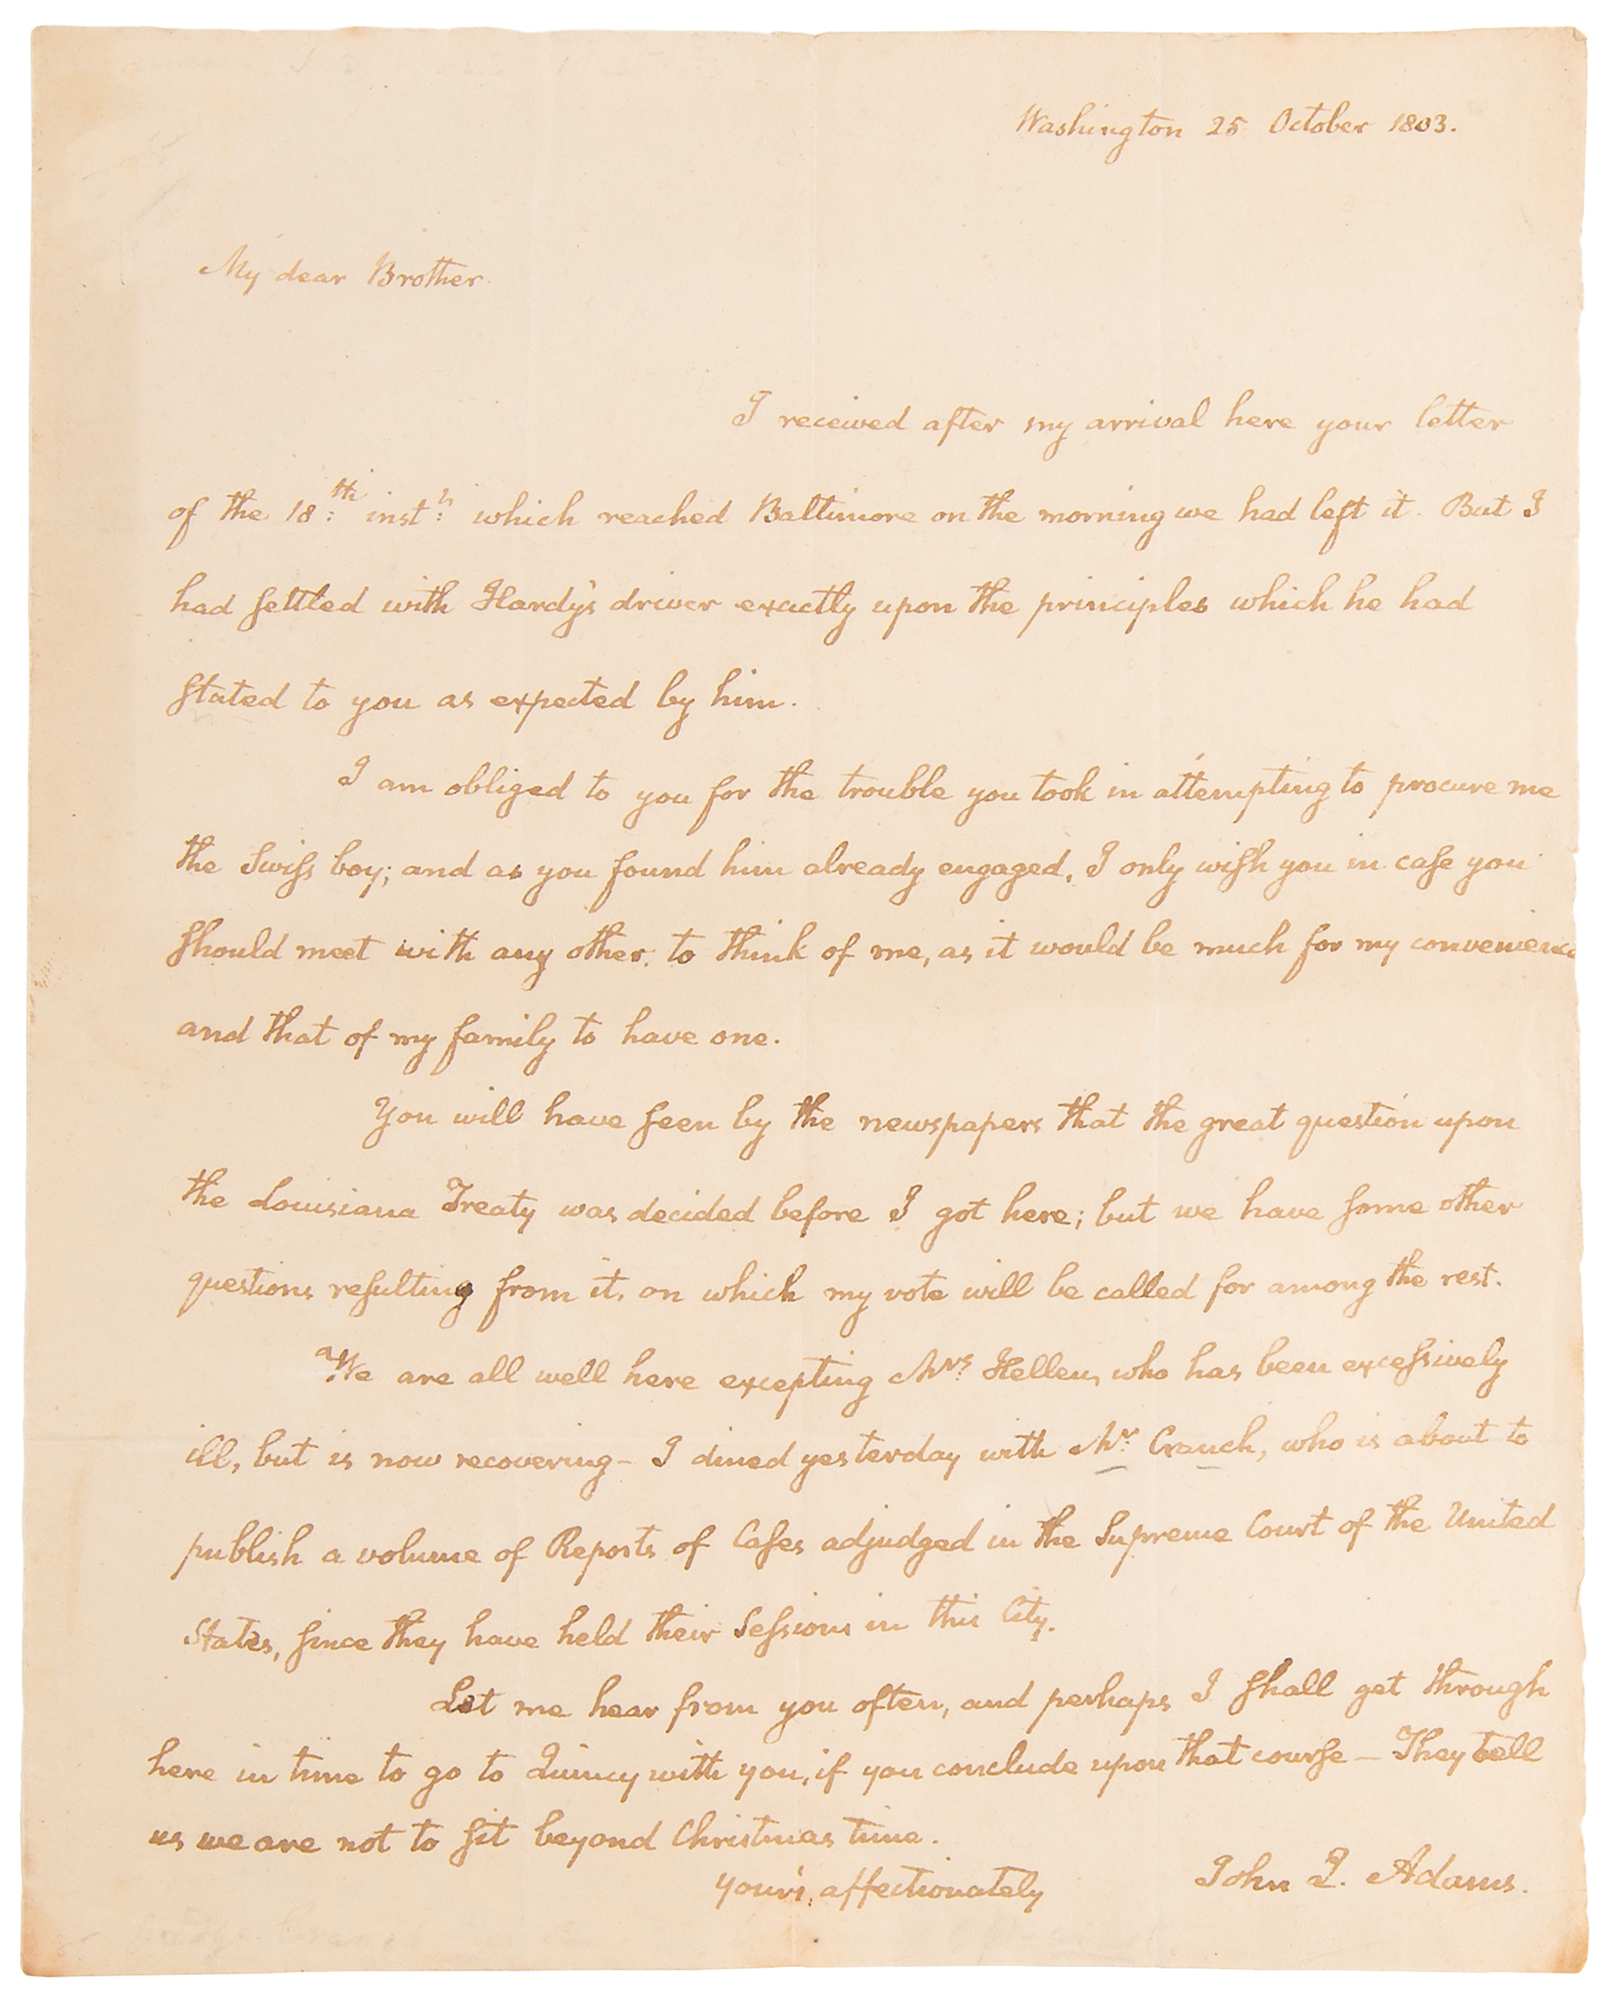 Washington 25 October 1803.
My dear Brother.
I received after my arrival here your letter
of the 18:th inst:t which reached Baltimore on the morning we had left it. But I
had settled with Hardy's driver exactly upon the principles which he had
stated to you as expected by him.
I am obliged to you for the trouble you took in attempting to procure me
the Swiss boy; and as you found him already engaged, I only wish you in case you
should meet with any other, to think of me, as it would be much for my convenience
and that of my family to have one.
You will have seen by the newspapers that the great question upon
the Louisiana Treaty was decided before I got here; but we have some other
questions resulting from it, on which my vote will be called for among the rest.
We are all well here excepting Mrs: Hellen, who has been excessively
ill, but is now recovering — I dined yesterday with Mr: Cranch, who is about to
publish a volume of Reports of Cases adjudged in the Supreme Court of the United
States, since they have held their Sessions in this City.
Let me hear from you often, and perhaps I shall get through
here in time to go to Quincy with you, if you conclude upon that course — They tell
us we are not to sit beyond Christmas time.
your's affectionately
John Q. Adams.